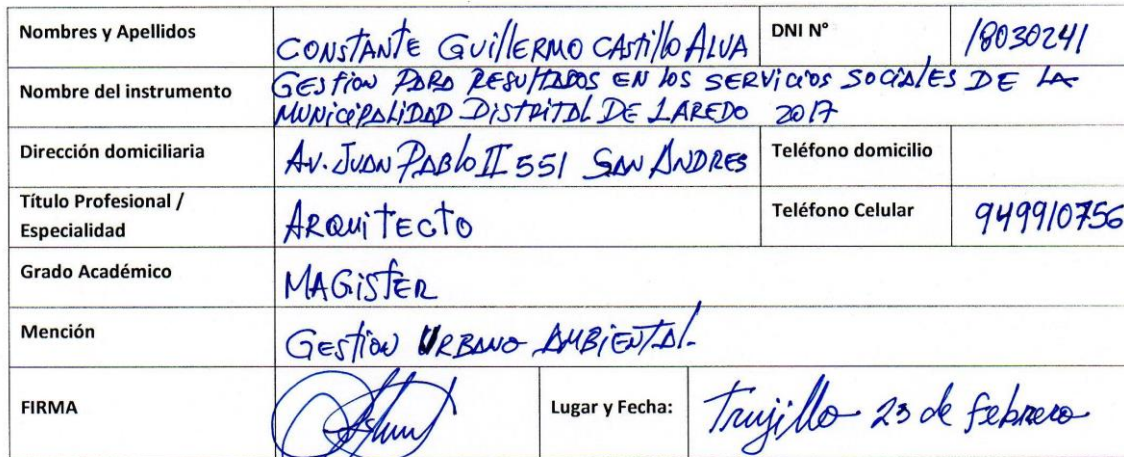 Nombres y Apellidos CONSTANTE GUILLERMO CASTILLO ALVA DNI N° 18030241
Nombre del instrumento GESTION PARA RESULTADOS EN LOS SERVICIOS SOCIALES DE LA
MUNICIPALIDAD DISTRITAL DE LAREDO 2017
Dirección domiciliaria AV. JUAN PABLO II 551 SAN ANDRES Teléfono domicilio
Título Profesional /
Especialidad ARQUITECTO Teléfono Celular 949910756
Grado Académico MAGISTER
Mención GESTION URBANO AMBIENTAL
FIRMA Lugar y Fecha: Trujillo 23 de febrero